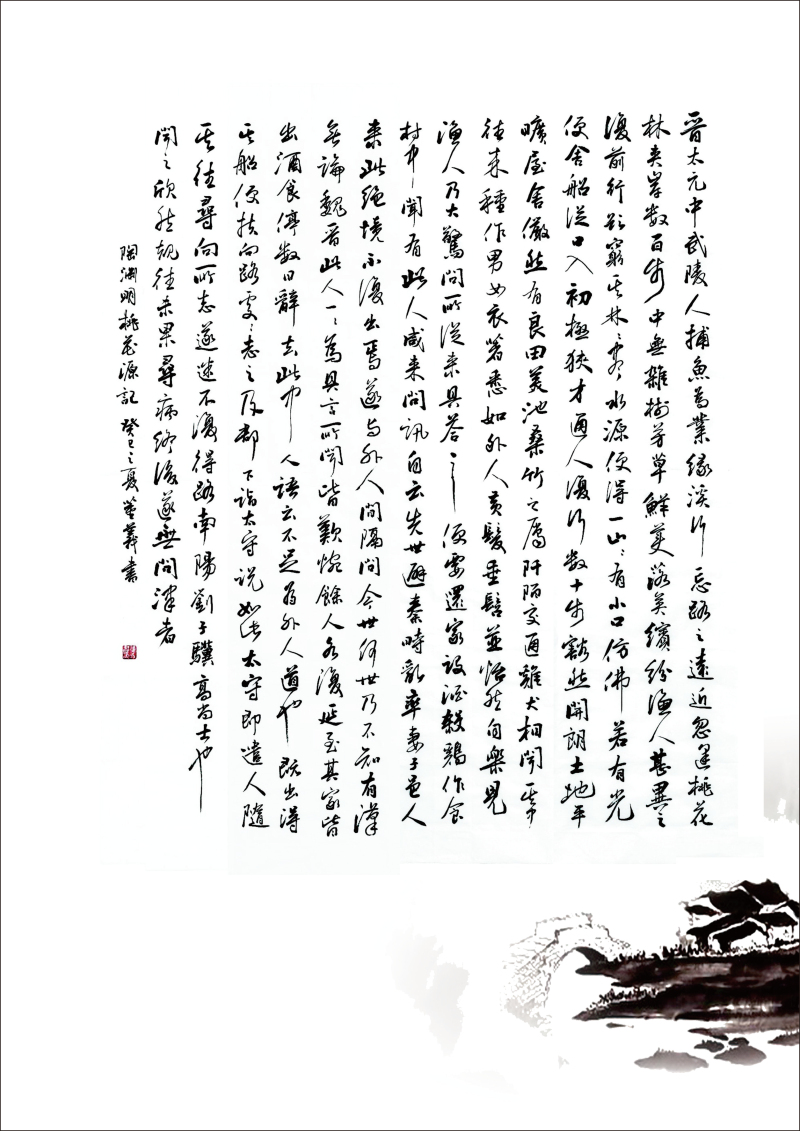 晉太元中武陵人捕魚為業緣溪行忘路之遠近忽逢桃花
林夾岸數百步中無雜樹芳草鮮美落英繽紛漁人甚異之
復前行欲窮其林〻盡水源便得一山〻有小口仿佛若有光
便舍船從口入初極狹才通人復行數十步豁然開朗土地平
曠屋舍儼然有良田美池桑竹之屬阡陌交通雞犬相聞其中
往來種作男女衣著悉如外人黃髮垂髫並怡然自樂見
漁人乃大驚問所從來具答之便要還家設酒殺鷄作食
村中聞有此人咸來問訊自云先世避秦時亂率妻子邑人
來此絕境不復出焉遂與外人間隔問今世何世乃不知有漢
無論魏晉此人一一為具言所聞皆歎惋餘人各復延至其家皆
出酒食停數日辭去此中人語云不足為外人道也既出得
其船便扶向路處〻志之及郡下詣太守說如此太守即遣人隨
其往尋向所志遂迷不復得路南陽劉子驥高尚士也
聞之欣然規往未果尋病終後遂無問津者
陶淵明桃花源記 癸巳之夏 書